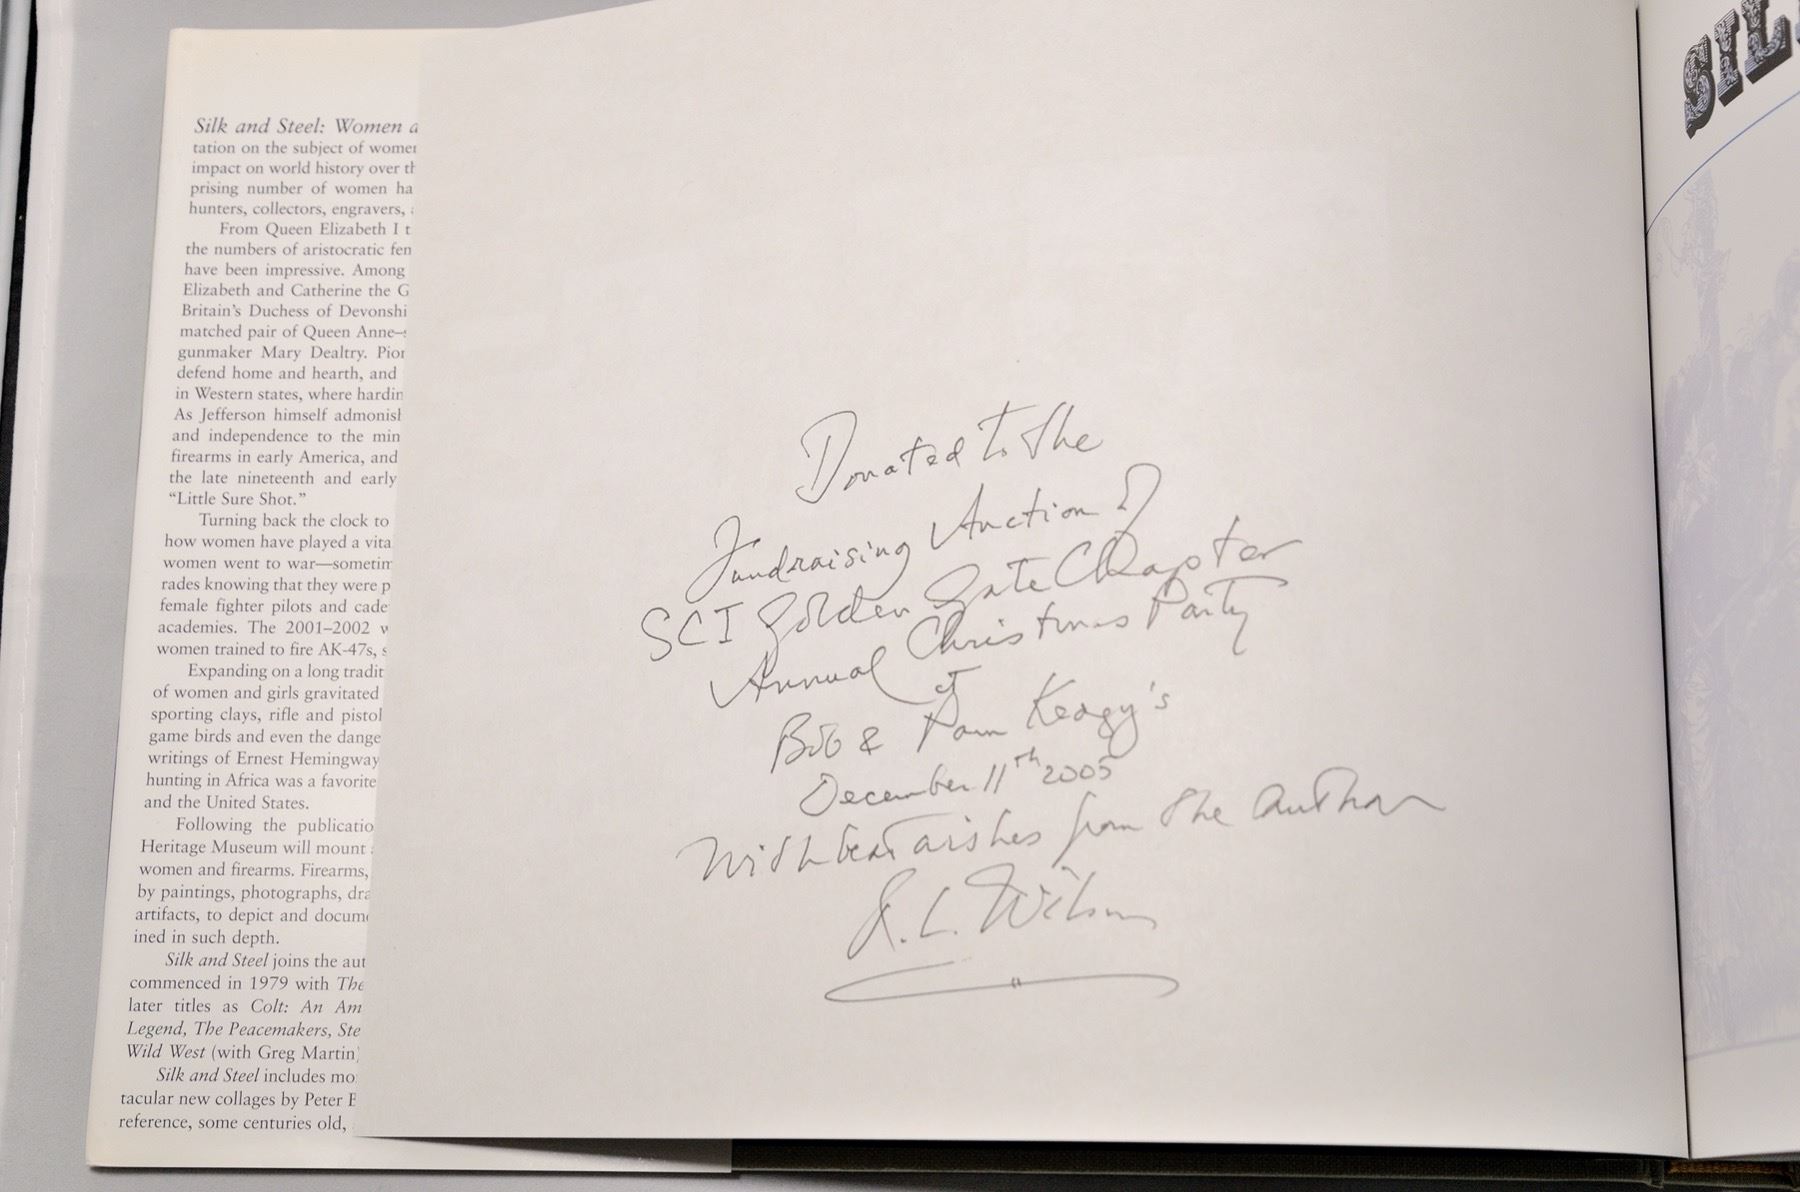 Silk and Steel: Women a
tation on the subject of women
impact on world history over th
prising number of women ha
hunters, collectors, engravers,
From Queen Elizabeth I t
the numbers of aristocratic fem
have been impressive. Among
Elizabeth and Catherine the G
Britain's Duchess of Devonshi
matched pair of Queen Anne–s
gunmaker Mary Dealtry. Pion
defend home and hearth, and
in Western states, where hardin
As Jefferson himself admonish
and independence to the min
firearms in early America, and
the late nineteenth and early
“Little Sure Shot.”
Turning back the clock to
how women have played a vita
women went to war—sometim
rades knowing that they were p
female fighter pilots and cade
academies. The 2001–2002 w
women trained to fire AK-47s, s
Expanding on a long tradit
of women and girls gravitated
sporting clays, rifle and pistol
game birds and even the dange
writings of Ernest Hemingway
hunting in Africa was a favorite
and the United States.
Following the publicatio
Heritage Museum will mount
women and firearms. Firearms,
by paintings, photographs, dra
artifacts, to depict and docume
ined in such depth.
Silk and Steel joins the aut
commenced in 1979 with The
later titles as Colt: An Am
Legend, The Peacemakers, Ste
Wild West (with Greg Martin)
Silk and Steel includes mo
tacular new collages by Peter B
reference, some centuries old,
Donated to the
Fundraising Auction of
SCI Golden Gate Chapter
Annual Christmas Party
at
Bob & Pam Keagy's
December 11th 2005
With best wishes from the author
R.L. Wilson
SIL